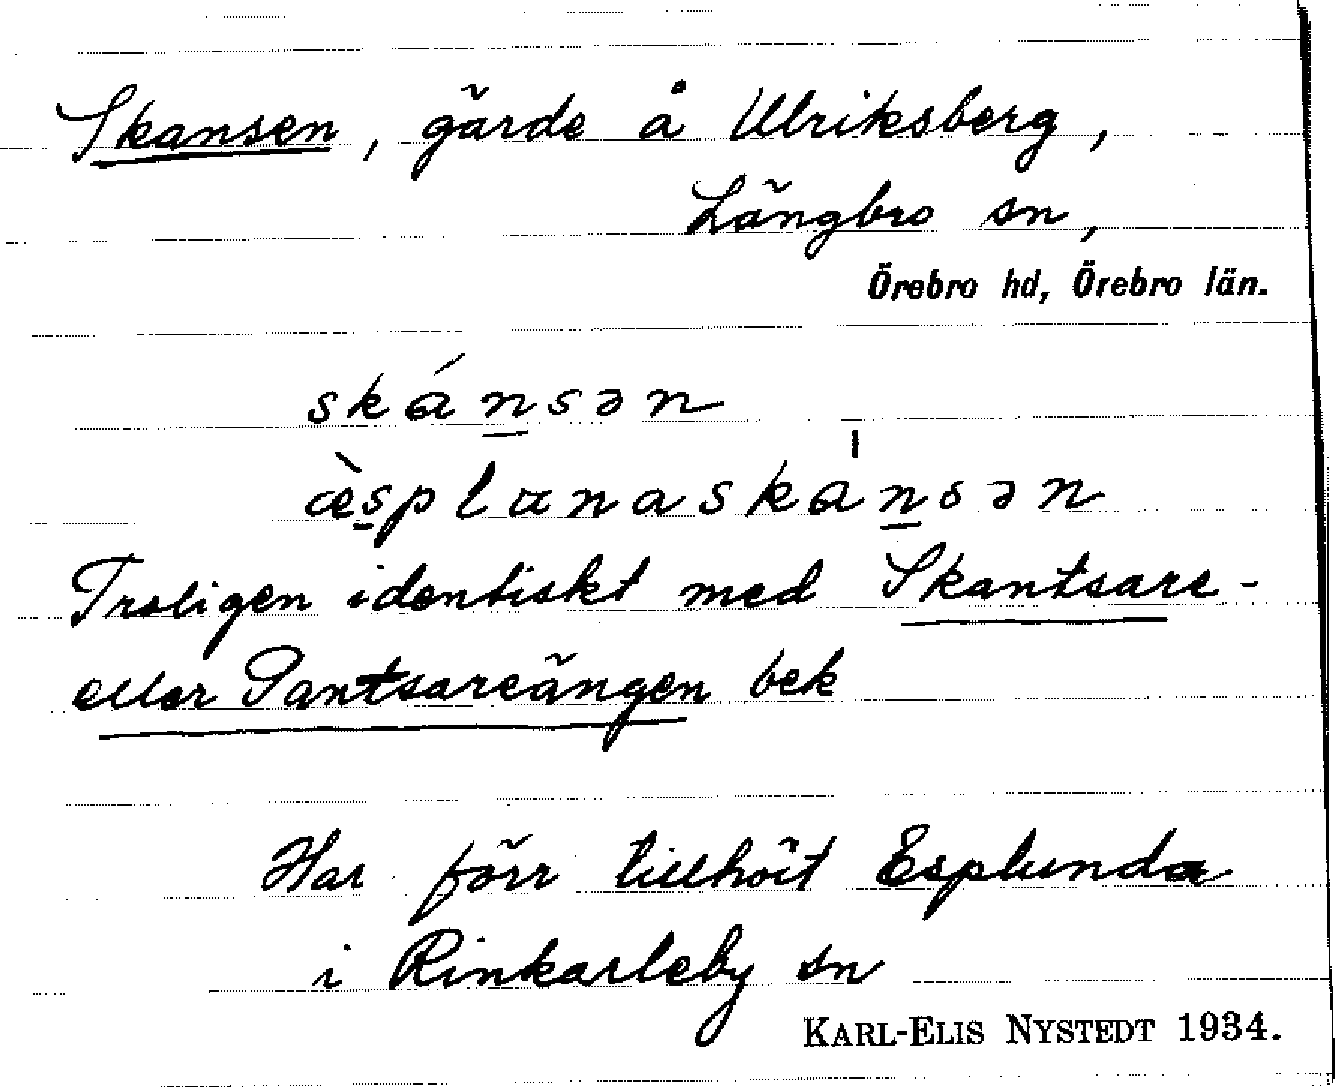 Skansen, gärde å Ulriksberg,
Längbro sn,
Örebro hd, Örebro län.
skánsən
æ̀splɯnaskánsən
Troligen identiskt med Skantsare-
eller Santsareängen bek
Har förr tillhöit Esplunda
i Rinkarleby sn
KARL-ELIS NYSTEDT 1934.